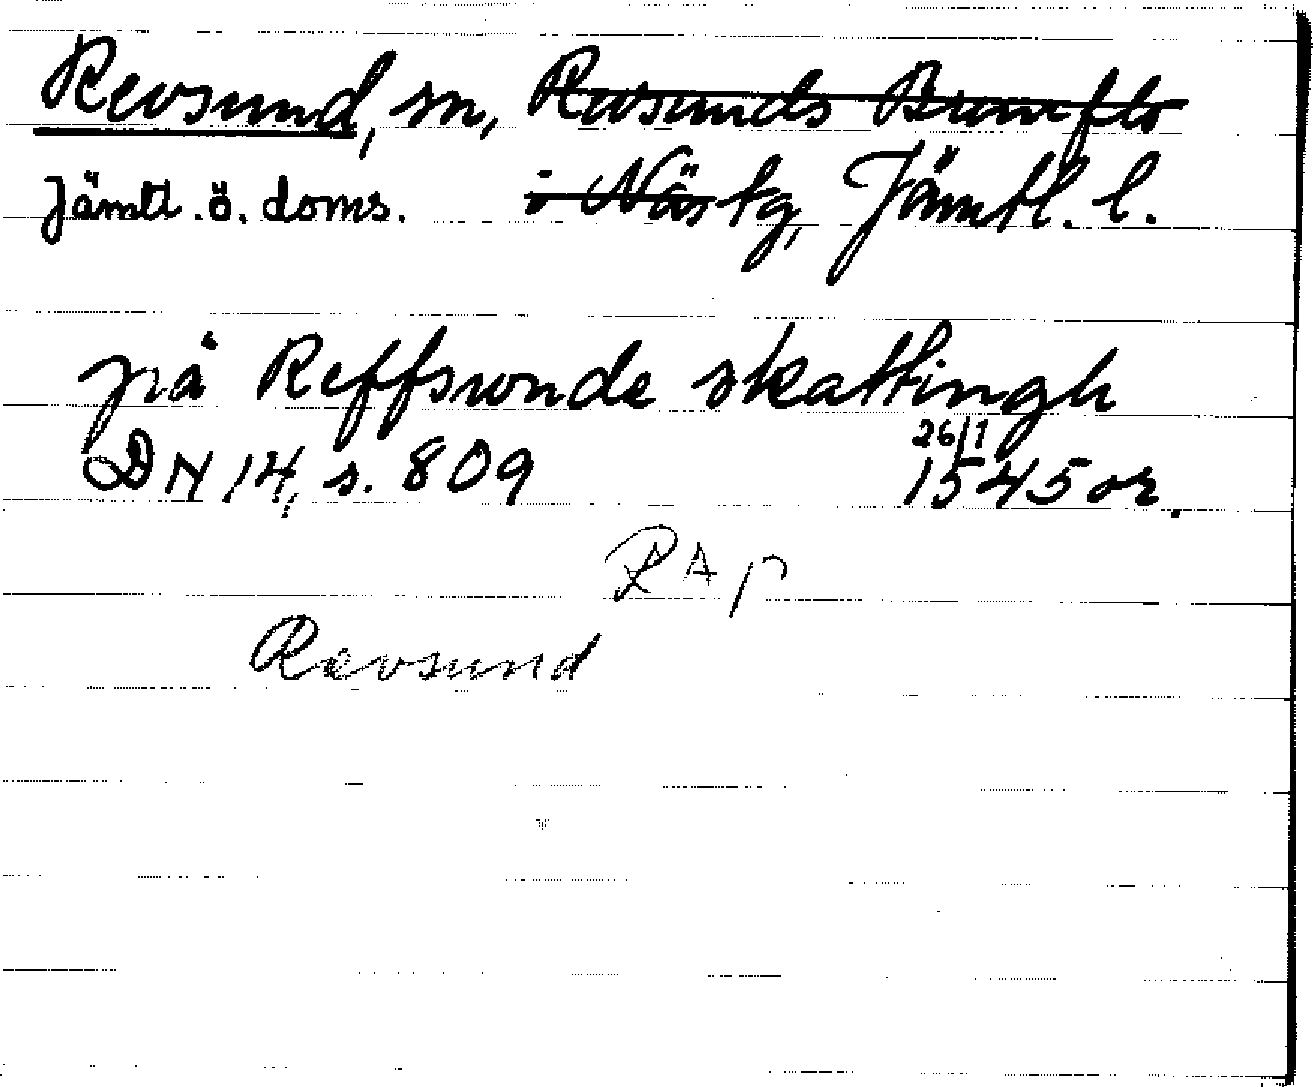 Revsund, sn, Revsunds Brunflo
Jämtl. ö. doms. o Näs tg, Jämtl. l.
på Reffswnde skattingh
26/1
DN 14, s. 809 1545 or.
RAp
Revsund